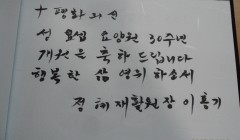 † 평화의 선
성 요셉 요양원 30주년
개원을 축하 드립니다
행복한 삶 영위 하소서
정혜재활원장 이흥기